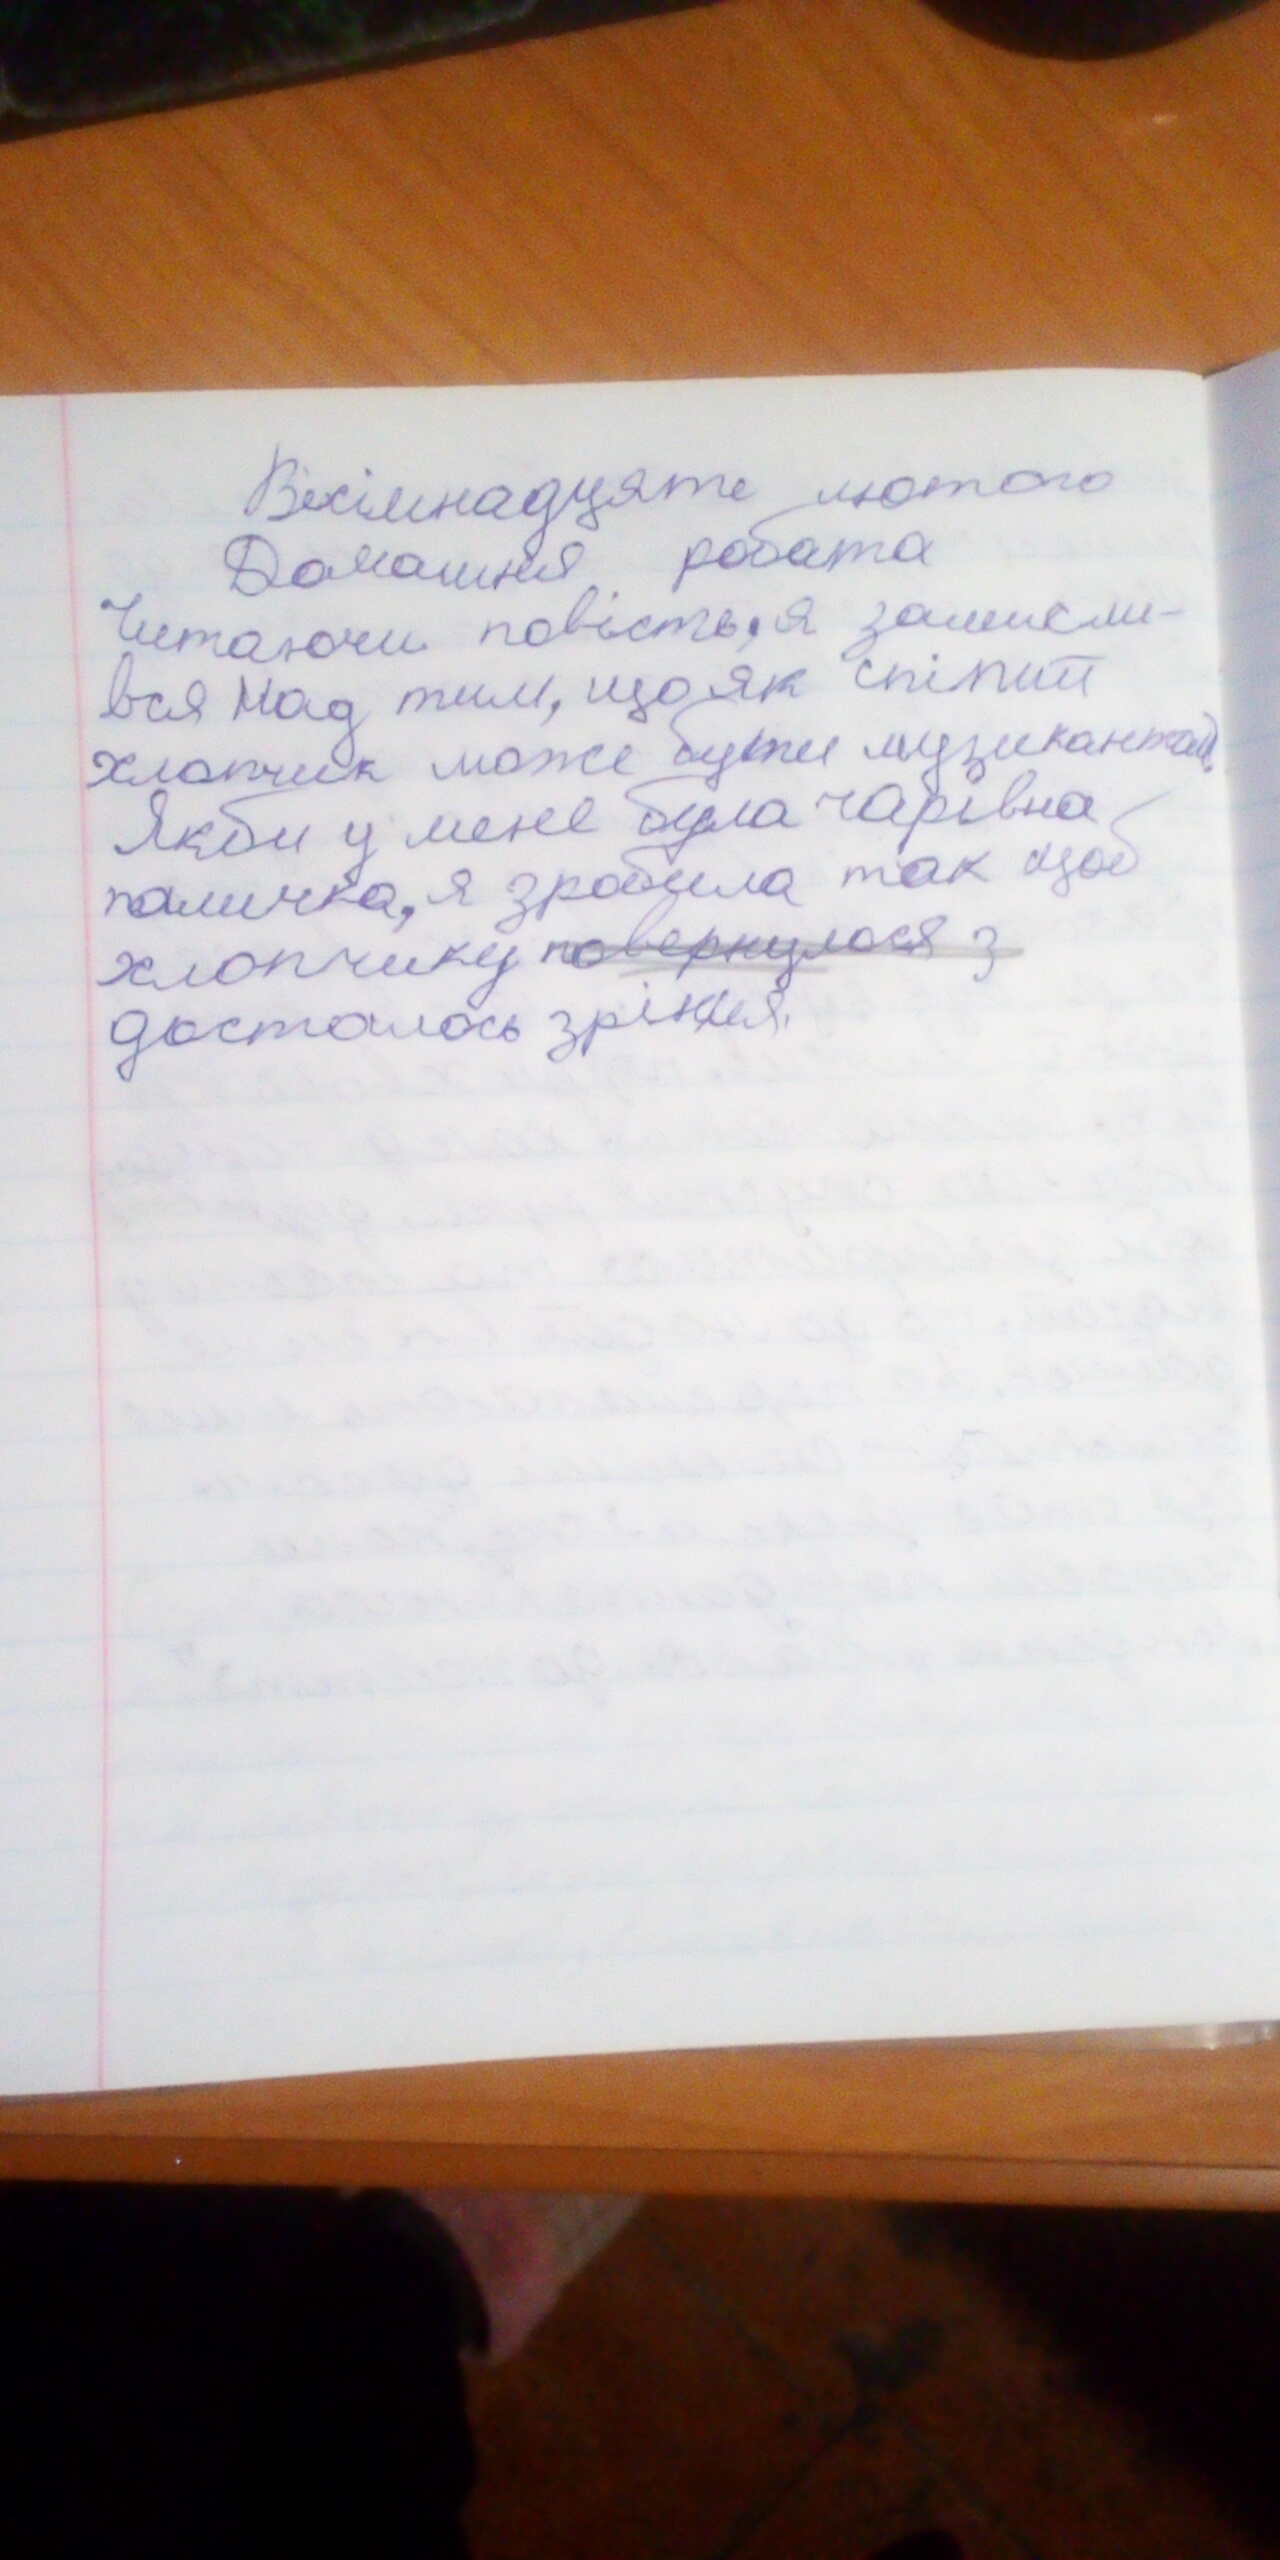 Вісімнадцяте лютого
Домашня робота
Читаючи повість, я замисли-
вся над тим, що як сліпий
хлопчик може бути музикантом.
Якби у мене була чарівна
паличка, я зробила так щоб
хлопчику повернулося з
досталось зріння.